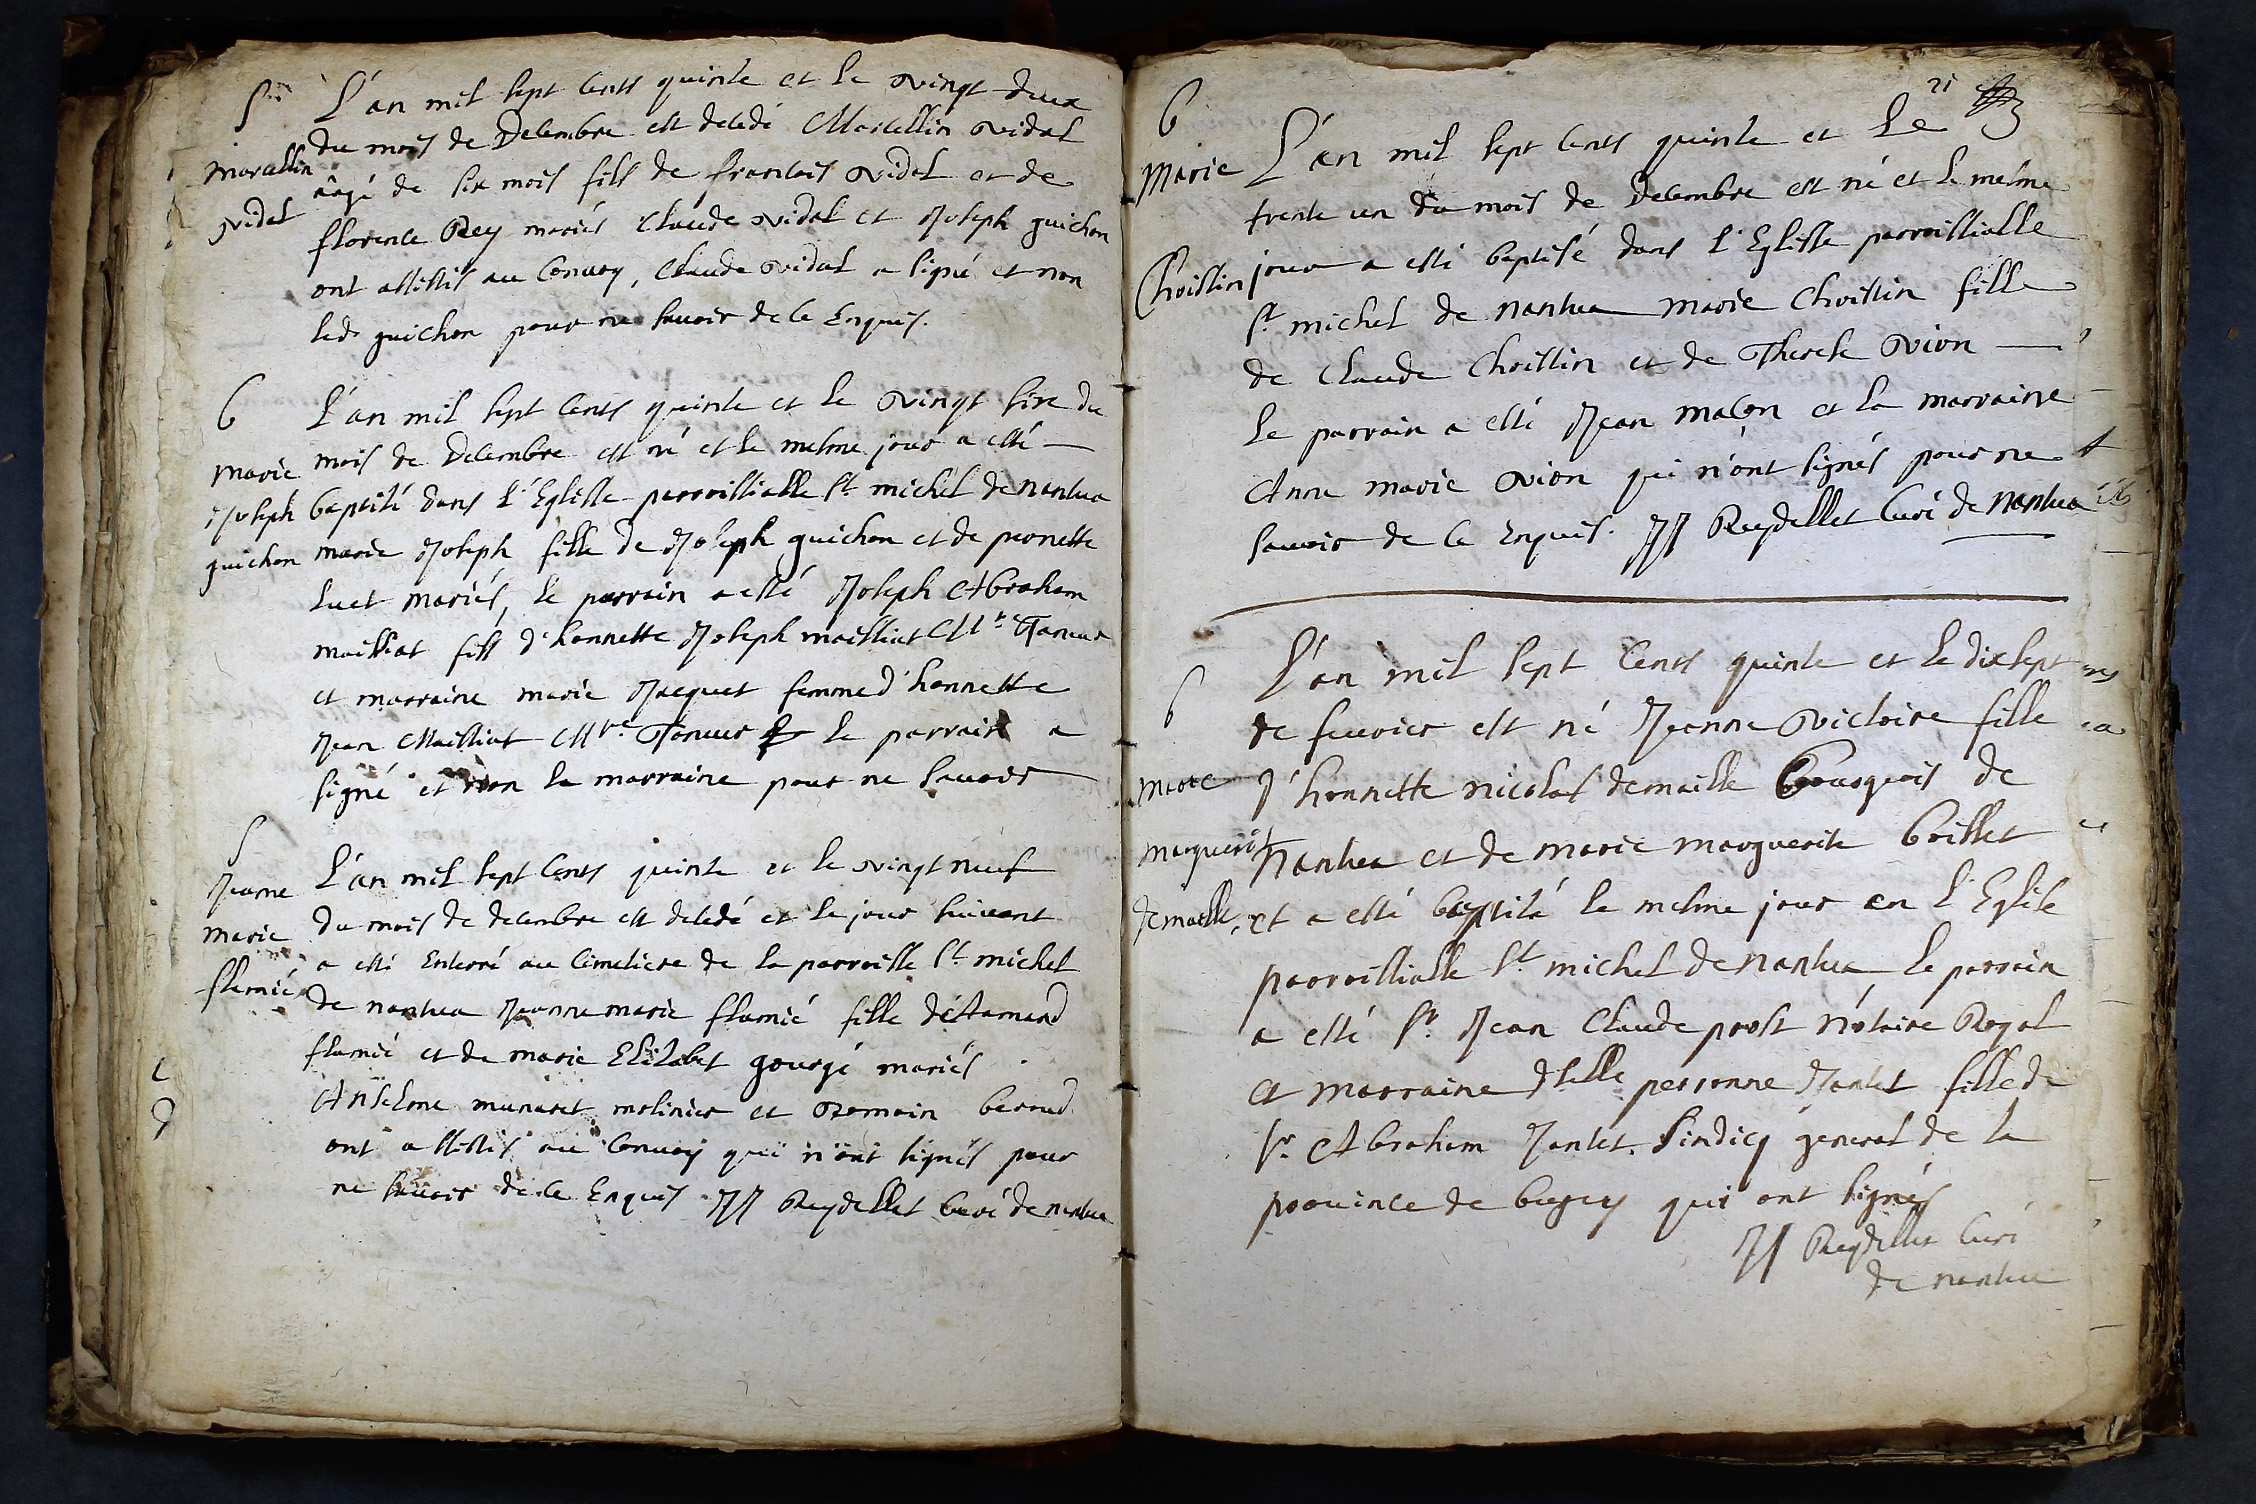 S
L'an mil sept Cents quinse et le vingt deux
du mois de Decembre est decedé Marcellin vidal
Marcellin
vidal
âagé de six mois fils de francois vidal et de
florence Rey mariés Claude vidal et Joseph guichon
ont assistés au Conuoy, Claude vidal a signé et non
led. guichon pour ne sauoir de ce Enquis.
6
L'an mil sept Cents quinse et le vingt sixe du
marie
Joseph
guichon
mois de Decembre est né et le mesme jour a esté
baptisé dans l'Eglisse parroissialle St. michel de nantua
marie Joseph fille de Joseph guichon et de peronette
Luet mariés, le parrain a esté Joseph Abraham
mailliat fils d'honnette Joseph mailliat Mre. Taneur
et marraine marie Jacquet femme d'honnette
Jean Mailliat Mre. Taneur le parrain a
signé et non la marraine pour ne sauoir
S
Jeanne
marie
flamié
L'an mil sept Cents quinse et le vingt neuf
du mois de decembre est decedé et le jour suiuant
a esté Enterré au Cimetiere de la parroisse St. michel
de nantua Jeanne marie flamié fille d'Amand
flamié et de marie Elizabet gourgé mariés
Anselme munaret molinier et Romain beroud
ont assistés au Conuoy qui n'ont signés pour
ne sauoir de ce Enquis JJ Reydellet Curé de nantua
21
6
Marie
Christin
L'an mil sept Cents quinse et Le
trente un du mois de Decembre est né et le mesme
jour a esté baptisé dans l'Eglisse parroissialle
St. michel de nantua marie Christin fille
de Claude Christin et de Therese vion
le parrain a esté Jean maçon et la marraine
Anne marie vion qui n'ont signés pour ne
sauoir de ce Enquis. JJ Reydellet Curé de nantua
6
marie
marguerit
demaille
L'an mil sept Cents quinse et le dix sept
de feurier est né Jeanne victoire fille
d'honnette nicolas demaille Bourgeois de
Nantua et de marie marguerite brillet
et a esté baptisé le mesme jour en l'Eglise
parroissialle St. michel de nantua le parrain
a esté Sr. Jean Claude prost nótaire Royal
et marraine dselle peronne Jantet fille de
Sr. Abraham Jantet. Sindicq general de la
prouince de bugey qui ont signés
JJ Reydellet Curé
de nantua